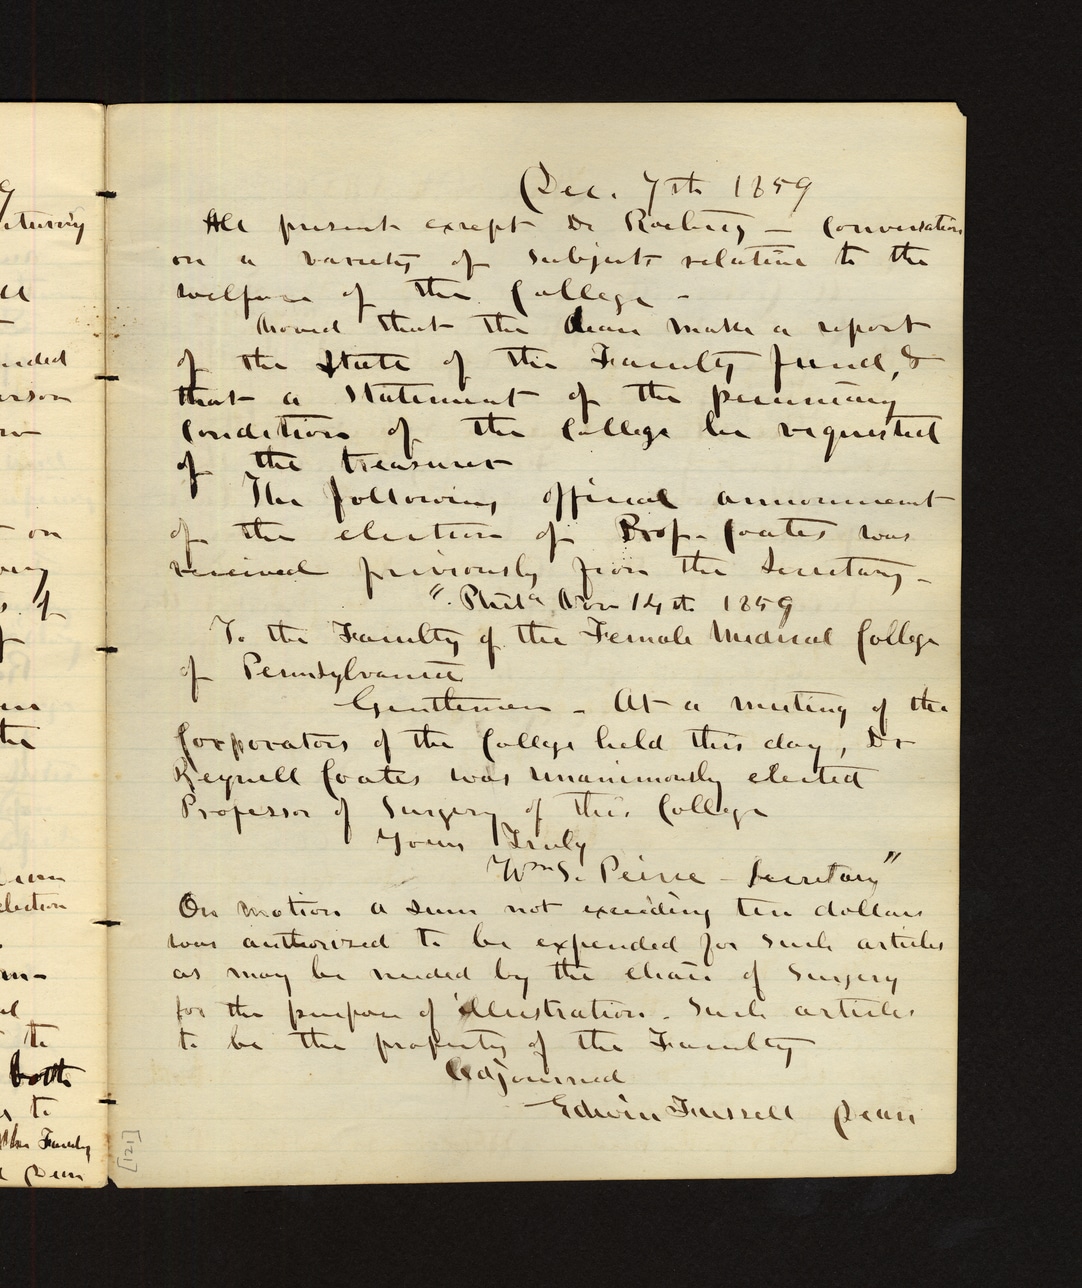 Dec. 7th 1859
All present except Dr — Conversation
on a variety of subjects relative to the
welfare of the College -
Moved that the dean make a report
of the state of the Faculty fund, &
that a statement of the pecuniary
condition of the College be requested
of the treasurer
The following official announcement
of the election of Prof. Coates was
received previously from the Secretary -
"Phila Nov 14th 1859
To the Faculty of the Female Medical College
of Pennsylvania
Gentlemen - At a meeting of the
Corporators of the College held this day, Dr
Reynell Coates was unanimously elected
Professor of Surgery of this College
Yours Truly
Wm S. Peirce - Secretary"
On motion a sum not exceeding ten dollars
was authorized to be expended for such articles
as may be needed by the chair of Surgery
for the purpose of illustration. Such articles
to be the property of the Faculty
Adjourned
Edwin Fussell Dean
[121]
nded
erson
on
the
election
to
both
to
the Faculty
Dean